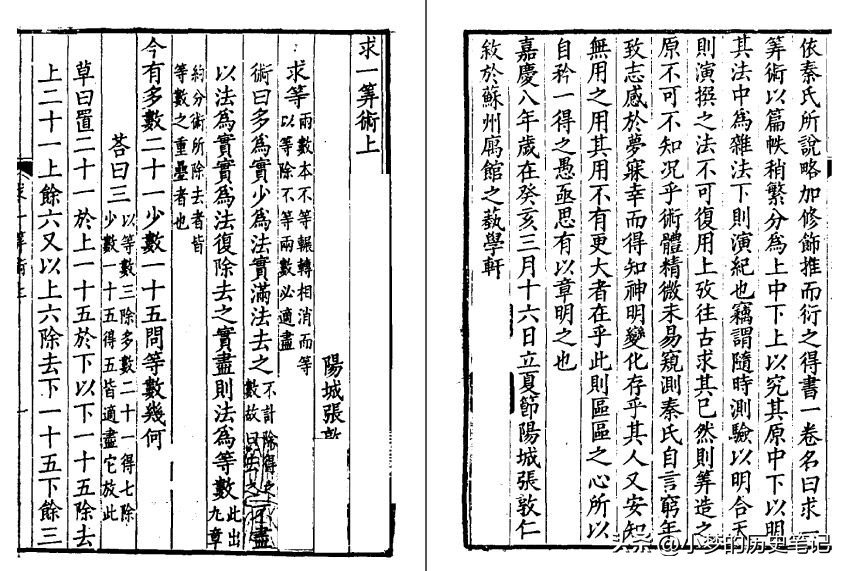 依秦氏所說略加修飾推而衍之得書一卷名曰求一
筭術以篇帙稍繁分為上中下上以究其原中下以明
其法中為雜法下則演紀也竊謂隨時測驗以明合天
則演撰之法不可復用上攷往古求其已然則筭造之
原不可不知況乎術體精微未易窺測秦氏自言窮年
致志感於夢寐幸而得知神明變化存乎其人又安知
無用之用其用不有更大者在乎此則區區之心所以
自矜一得之愚亟思有以章明之也
嘉慶八年歲在癸亥三月十六日立夏節陽城張敦仁
敘於蘇州廨館之藝學軒
求一筭術上
陽城張敦
求等兩數本不等輾轉相消而等以等除不等兩數必適盡
術曰多為實少為法實滿法去之不計除得數故曰去
以法為實實為法復除去之實盡則法為等數此出九章
約分術所除去者皆等數之重疊者也
今有多數二十一少數一十五問等數幾何
荅曰三以等數三除多數二十一得七除少數一十五得五皆適盡它放此
草曰置二十一於上一十五於下以下一十五除去
上二十一上餘六又以上六除去下一十五下餘三
求一筭術上
头条@小梦的历史笔记